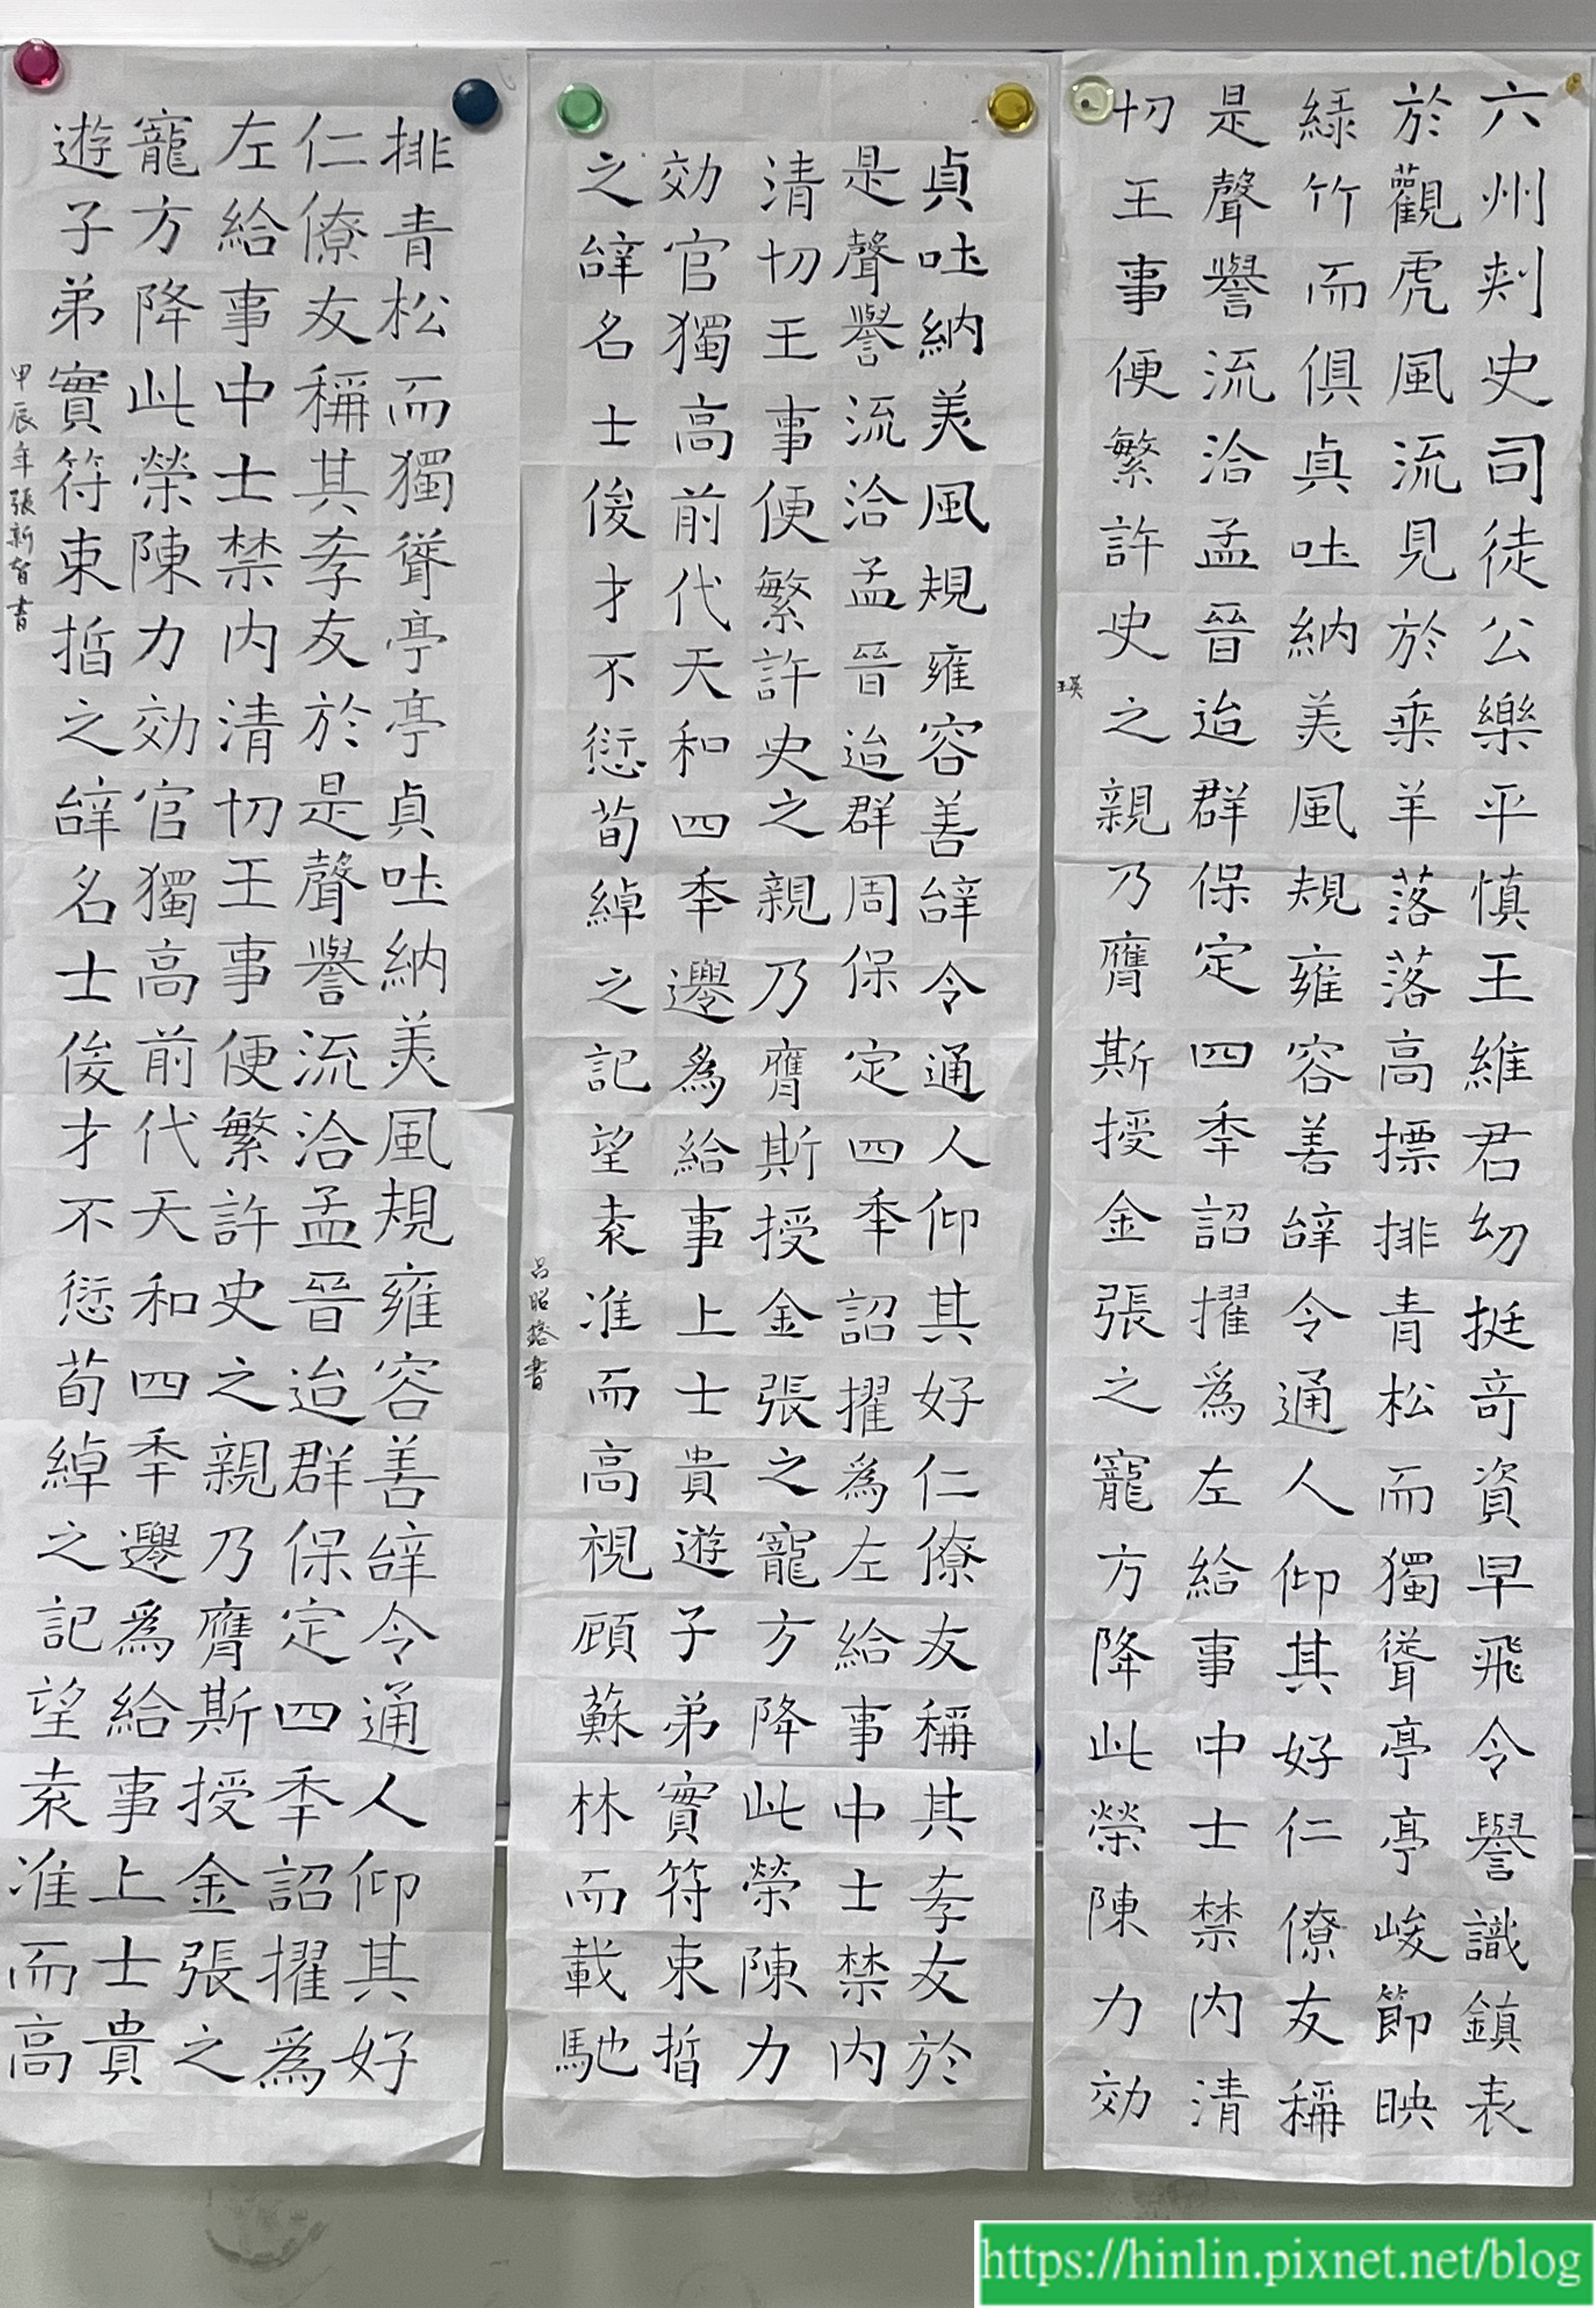 六州刾史司徒公樂平慎王維君幼挺竒資早飛令譽識鎮表
於觀虎風流見於乘羊落落高摽排青松而獨聳亭亭峻節映
緑竹而俱貞吐納美風規雍容善辝令通人仰其好仁僚友稱
是聲譽流洽孟晉迨群保定四秊詔擢爲左給事中士禁内清
切王事便繁許史之親乃膺斯授金張之寵方降此榮陳力効
王英
貞吐納美風規雍容善辝令通人仰其好仁僚友稱其孝友於
是聲譽流洽孟晉迨群周保定四秊詔擢爲左給事中士禁内
清切王事便繁許史之親乃膺斯授金張之寵方降此榮陳力
効官獨高前代天和四秊遷爲給事上士貴遊子弟實符束晢
之辝名士俊才不愆荀綽之記望袁准而高視顧蘇林而載馳
呂昭嫆書
排青松而獨聳亭亭貞吐納美風規雍容善辝令通人仰其好
仁僚友稱其孝友於是聲譽流洽孟晉迨群保定四秊詔擢爲
左給事中士禁内清切王事便繁許史之親乃膺斯授金張之
寵方降此榮陳力効官獨高前代天和四秊遷爲給事上士貴
遊子弟實符束晢之辝名士俊才不愆荀綽之記望袁准而高
甲辰年張新智書
https://hinlin.pixnet.net/blog